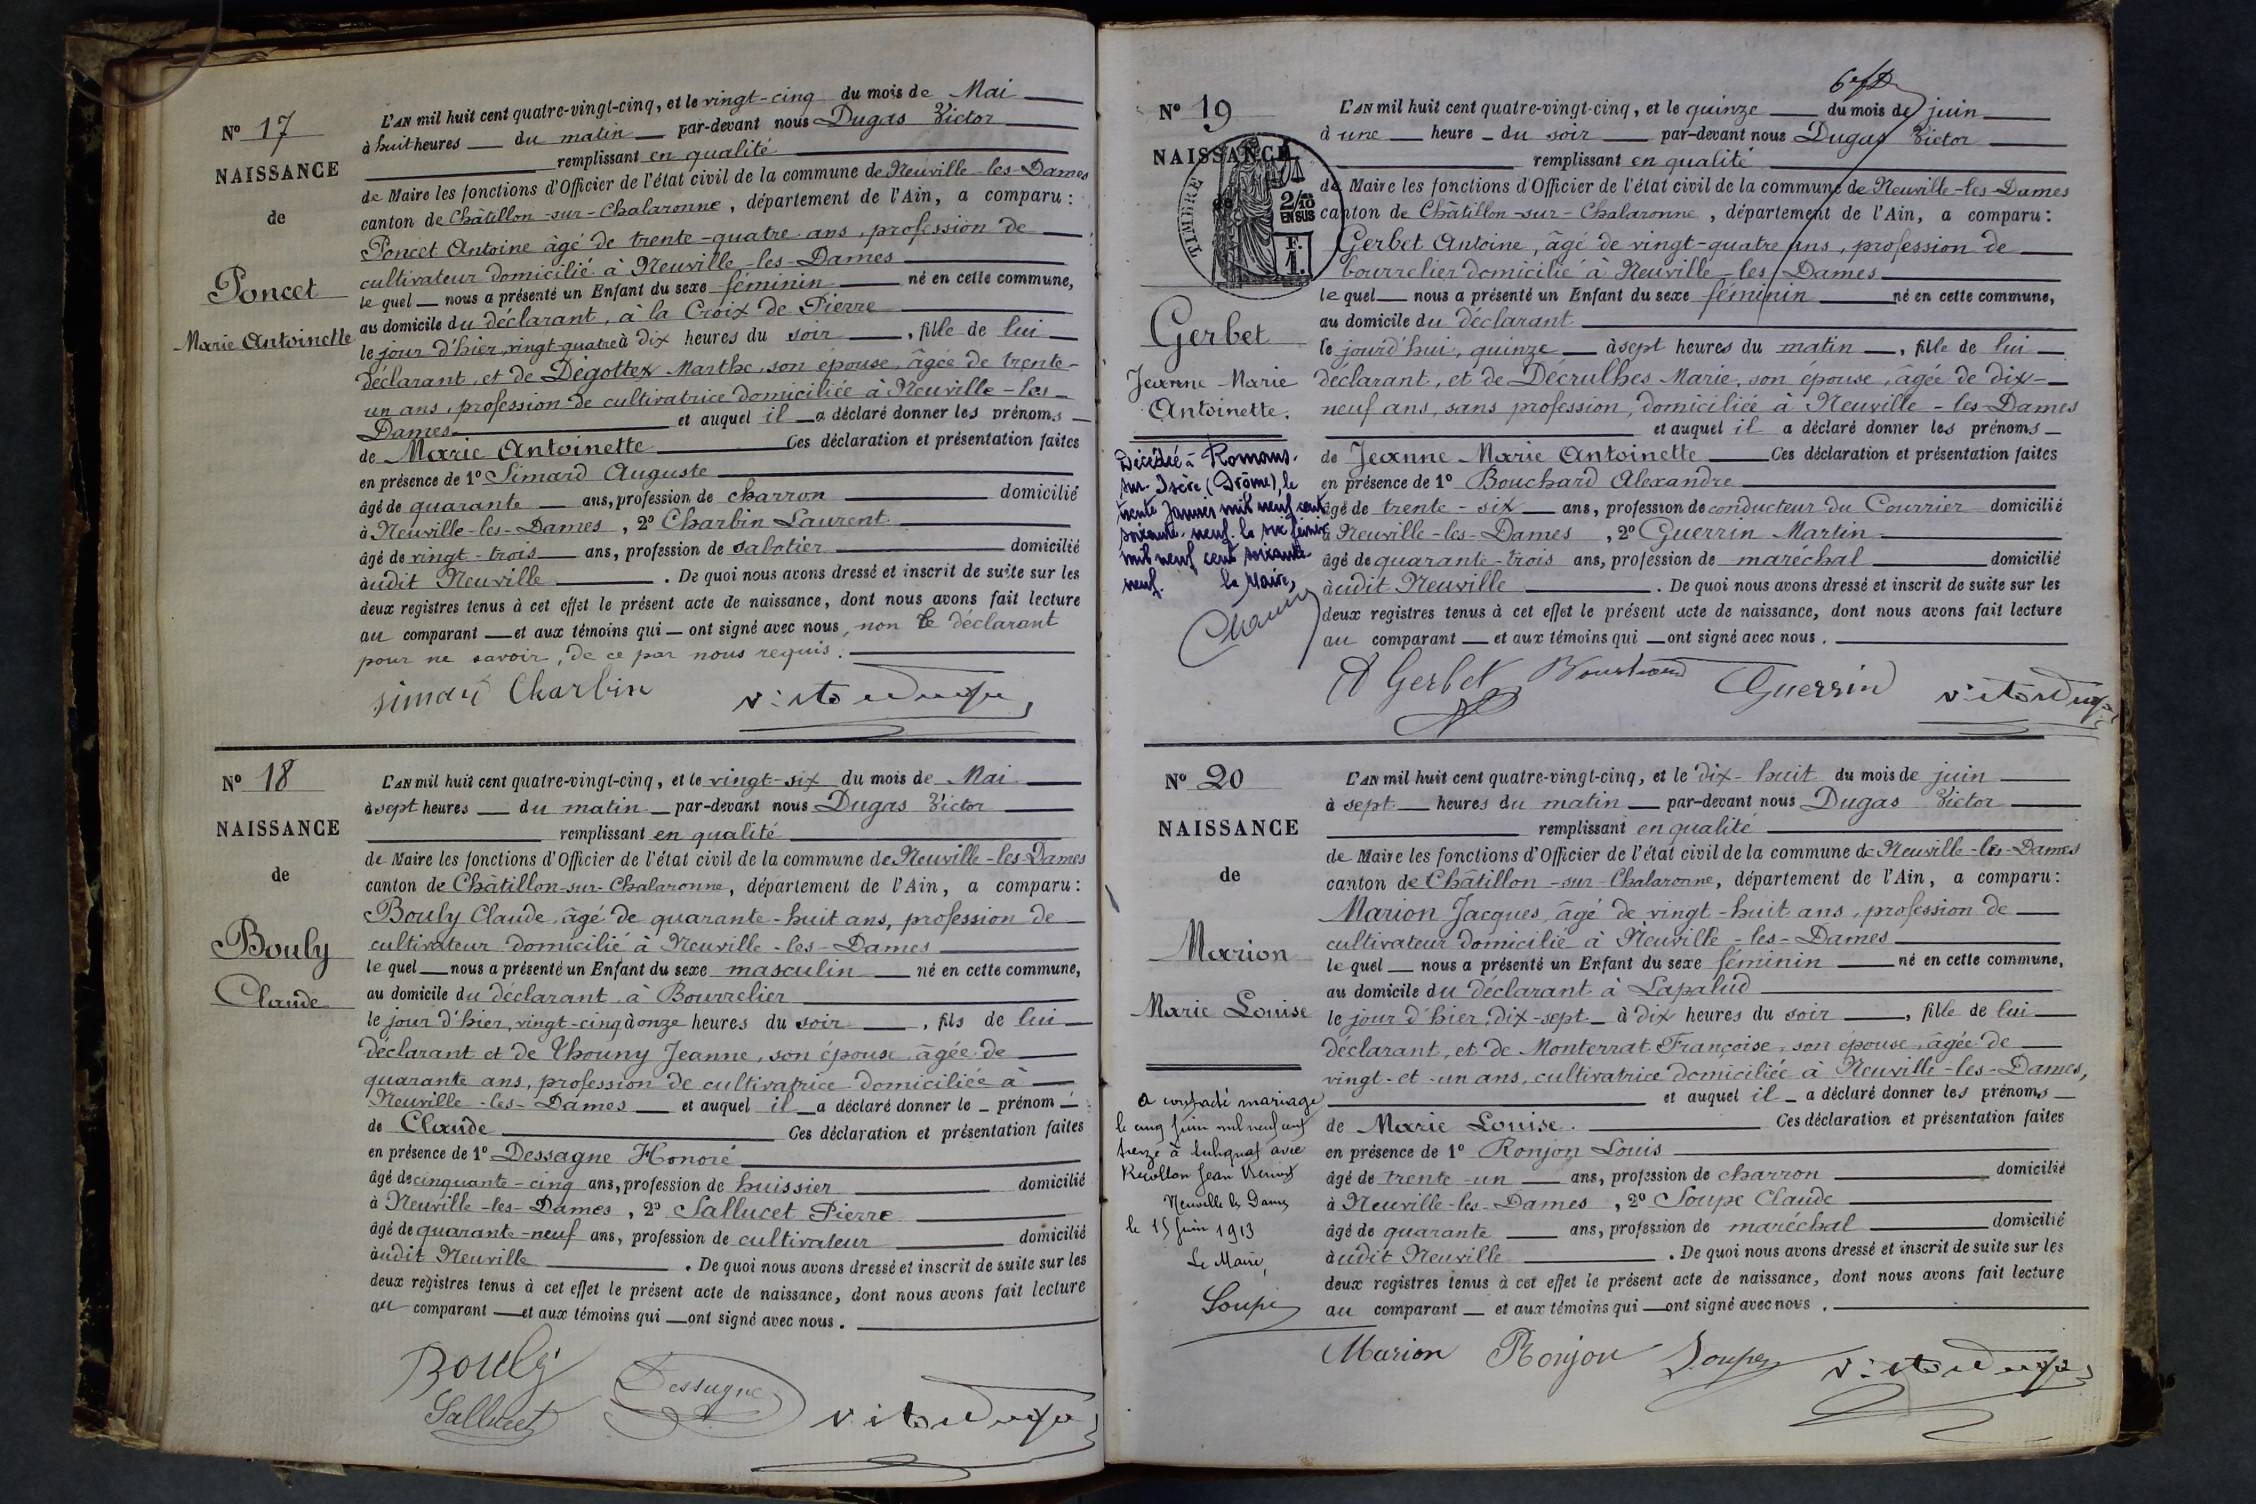 N° 17
NAISSANCE
de
Poncet
Marie Antoinette
L'AN mil huit cent quatre-vingt-cinq, et le vingt-cinq du mois de Mai
à huit heures du matin par-devant nous Dugas Victor
remplissant en qualité
de Maire les fonctions d'Officier de l'état civil de la commune de Neuville-les-Dames
canton de Châtillon-sur-Chalaronne, département de l'Ain, a comparu :
Poncet Antoine âgé de trente-quatre ans, profession de
cultivateur domicilié à Neuville-les-Dames
le quel nous a présenté un Enfant du sexe féminin né en cette commune,
au domicile du déclarant, à la Croix de Pierre
le jour d'hier, vingt-quatre à dix heures du soir, fille de lui
déclarant, et de Dégottex Marthe, son épouse, âgée de trente-
un ans, profession de cultivatrice domiciliée à Neuville-les-
Dames et auquel il a déclaré donner les prénoms
de Marie Antoinette Ces déclaration et présentation faites
en présence de 1° Simard Auguste
âgé de quarante ans, profession de charron domicilié
à Neuville-les-Dames, 2° Charbin Laurent
âgé de vingt-trois ans, profession de sabotier domicilié
àudit Neuville. De quoi nous avons dressé et inscrit de suite sur les
deux registres tenus à cet effet le présent acte de naissance, dont nous avons fait lecture
au comparant et aux témoins qui ont signé avec nous, non le déclarant
pour ne savoir, de ce par nous requis.
Simard Charbin Victor Dugas
N° 18
NAISSANCE
de
Bouly
Claude
L'AN mil huit cent quatre-vingt-cinq, et le vingt-six du mois de Mai
à sept heures du matin par-devant nous Dugas Victor
remplissant en qualité
de Maire les fonctions d'Officier de l'état civil de la commune de Neuville-les-Dames
canton de Châtillon-sur-Chalaronne, département de l'Ain, a comparu :
Bouly Claude, âgé de quarante-huit ans, profession de
cultivateur domicilié à Neuville-les-Dames
le quel nous a présenté un Enfant du sexe masculin né en cette commune,
au domicile du déclarant à Bourrelier
le jour d'hier, vingt-cinq à onze heures du soir, fils de lui
déclarant et de Thouny Jeanne, son épouse, âgée de
quarante ans, profession de cultivatrice domiciliée à
Neuville-les-Dames et auquel il a déclaré donner le prénom
de Claude Ces déclaration et présentation faites
en présence de 1° Dessagne Honoré
âgé de cinquante-cinq ans, profession de huissier domicilié
à Neuville-les-Dames, 2° Sallucet Pierre
âgé de quarante-neuf ans, profession de cultivateur domicilié
àudit Neuville. De quoi nous avons dressé et inscrit de suite sur les
deux registres tenus à cet effet le présent acte de naissance, dont nous avons fait lecture
au comparant et aux témoins qui ont signé avec nous.
Bouly Dessagne Victor Dugas
Sallucet
N° 19
NAISSANCE
de
TIMBRE
2/10
EN SUS
F.
1.
Gerbet
Jeanne Marie
Antoinette.
Décédée à Romans-
sur-Isère (Drôme), le
trente Janvier mil neuf cent
soixante-neuf. Le six février
mil neuf cent soixante
neuf. Le Maire,
L'AN mil huit cent quatre-vingt-cinq, et le quinze du mois de juin
à une heure du soir par-devant nous Dugas Victor
remplissant en qualité
de Maire les fonctions d'Officier de l'état civil de la commune de Neuville-les-Dames
canton de Châtillon-sur-Chalaronne, département de l'Ain, a comparu :
Gerbet Antoine, âgé de vingt-quatre ans, profession de
bourrelier domicilié à Neuville-les-Dames
le quel nous a présenté un Enfant du sexe féminin né en cette commune,
au domicile du déclarant
le jourd'hui, quinze à sept heures du matin, fille de lui
déclarant, et de Décrulhes Marie, son épouse, âgée de dix-
neuf ans, sans profession, domiciliée à Neuville-les-Dames
et auquel il a déclaré donner les prénoms
de Jeanne Marie Antoinette Ces déclaration et présentation faites
en présence de 1° Bouchard Alexandre
âgé de trente-six ans, profession de conducteur du Courrier domicilié
à Neuville-les-Dames, 2° Guerrin Martin
âgé de quarante-trois ans, profession de maréchal domicilié
àudit Neuville. De quoi nous avons dressé et inscrit de suite sur les
deux registres tenus à cet effet le présent acte de naissance, dont nous avons fait lecture
au comparant et aux témoins qui ont signé avec nous.
A Gerbet Bouchard Guerrin Victor Dugas
N° 20
NAISSANCE
de
Marion
Marie Louise
a contracté mariage
le cinq juin mil neuf cent
treize à avec
Jean
Neuville les Dames
le 15 juin 1913
Le Maire,
Soupe
L'AN mil huit cent quatre-vingt-cinq, et le dix-huit du mois de juin
à sept heures du matin par-devant nous Dugas Victor
remplissant en qualité
de Maire les fonctions d'Officier de l'état civil de la commune de Neuville-les-Dames
canton de Châtillon-sur-Chalaronne, département de l'Ain, a comparu :
Marion Jacques, âgé de vingt-huit ans, profession de
cultivateur domicilié à Neuville-les-Dames
le quel nous a présenté un Enfant du sexe féminin né en cette commune,
au domicile du déclarant à Lapalud
le jour d'hier, dix-sept à dix heures du soir, fille de lui
déclarant, et de Monterrat Françoise, son épouse, âgée de
vingt-et-un ans, cultivatrice domiciliée à Neuville-les-Dames,
et auquel il a déclaré donner les prénoms
de Marie Louise. Ces déclaration et présentation faites
en présence de 1° Ronjon Louis
âgé de trente-un ans, profession de charron domicilié
à Neuville-les-Dames, 2° Soupe Claude
âgé de quarante ans, profession de maréchal domicilié
àudit Neuville. De quoi nous avons dressé et inscrit de suite sur les
deux registres tenus à cet effet le présent acte de naissance, dont nous avons fait lecture
au comparant et aux témoins qui ont signé avec nous.
Marion Ronjon Soupe Victor Dugas